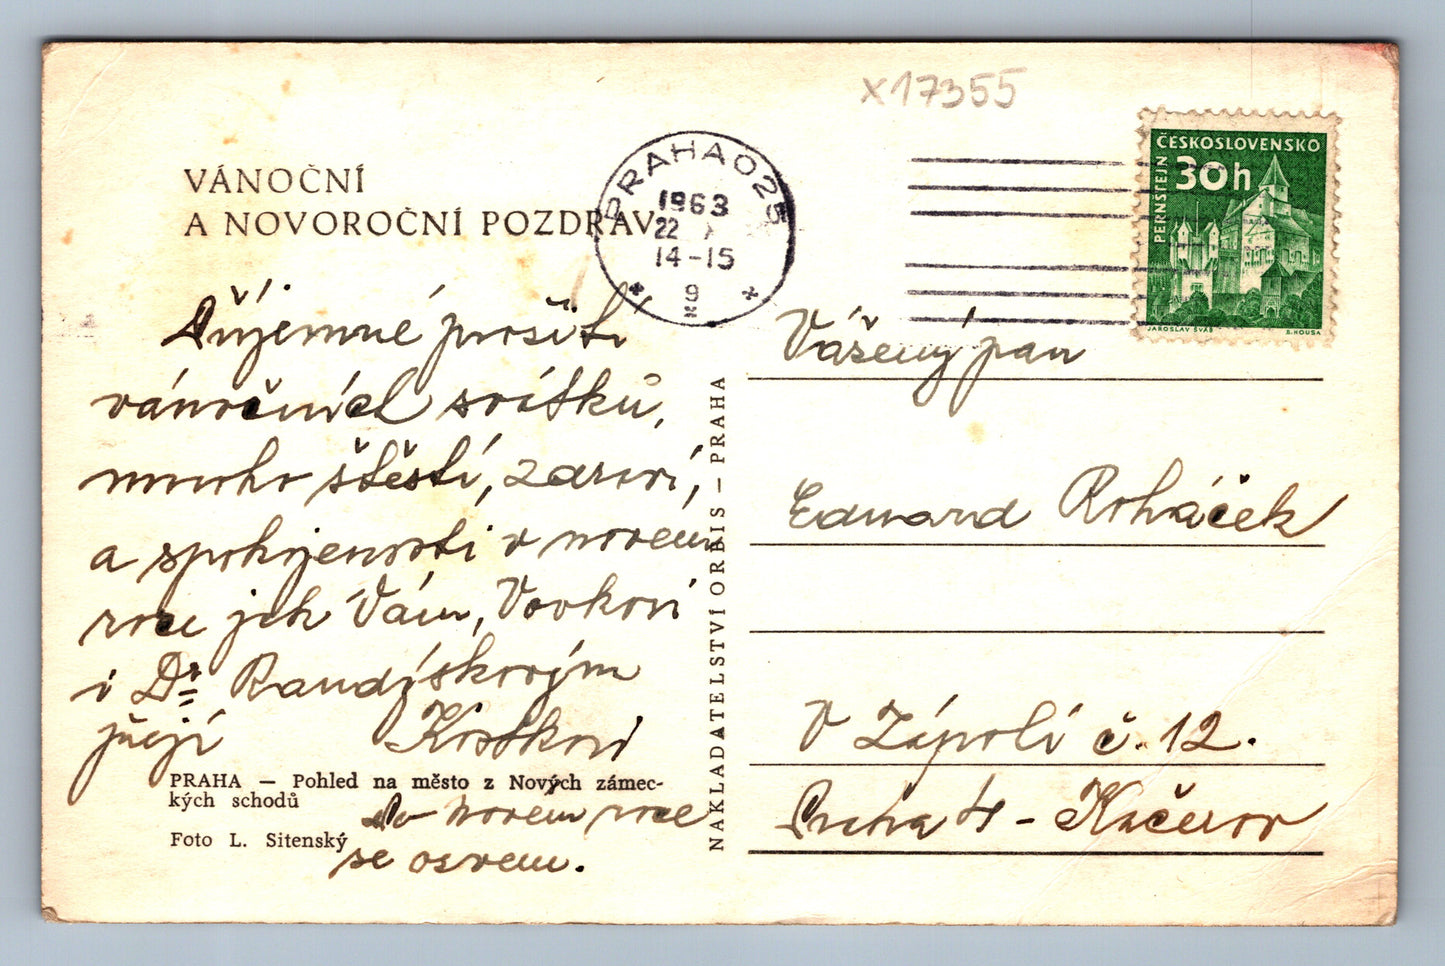 X17355
VÁNOČNÍ
A NOVOROČNÍ POZDRAV
PRAHA 025
1963
22 X
14-15
9
ČESKOSLOVENSKO
30h
PERNŠTEJN
JAROSLAV ŠVÁB
B. HOUSA
Příjemné prožití
vánočních svátků,
mnoho štěstí, zdraví,
a spokojenosti v novém
roce jak Vám, Vovkovi
i Dr Randýskovým
přejí Kostkovi
PRAHA — Pohled na město z Nových zámec-
kých schodů
Po novém roce
Foto L. Sitenský
se ozvem.
NAKLADATELSTVÍ ORBIS – PRAHA
Vážený pan
Eduard Roháček
V Zápolí č. 12.
Praha 4 - Kačerov